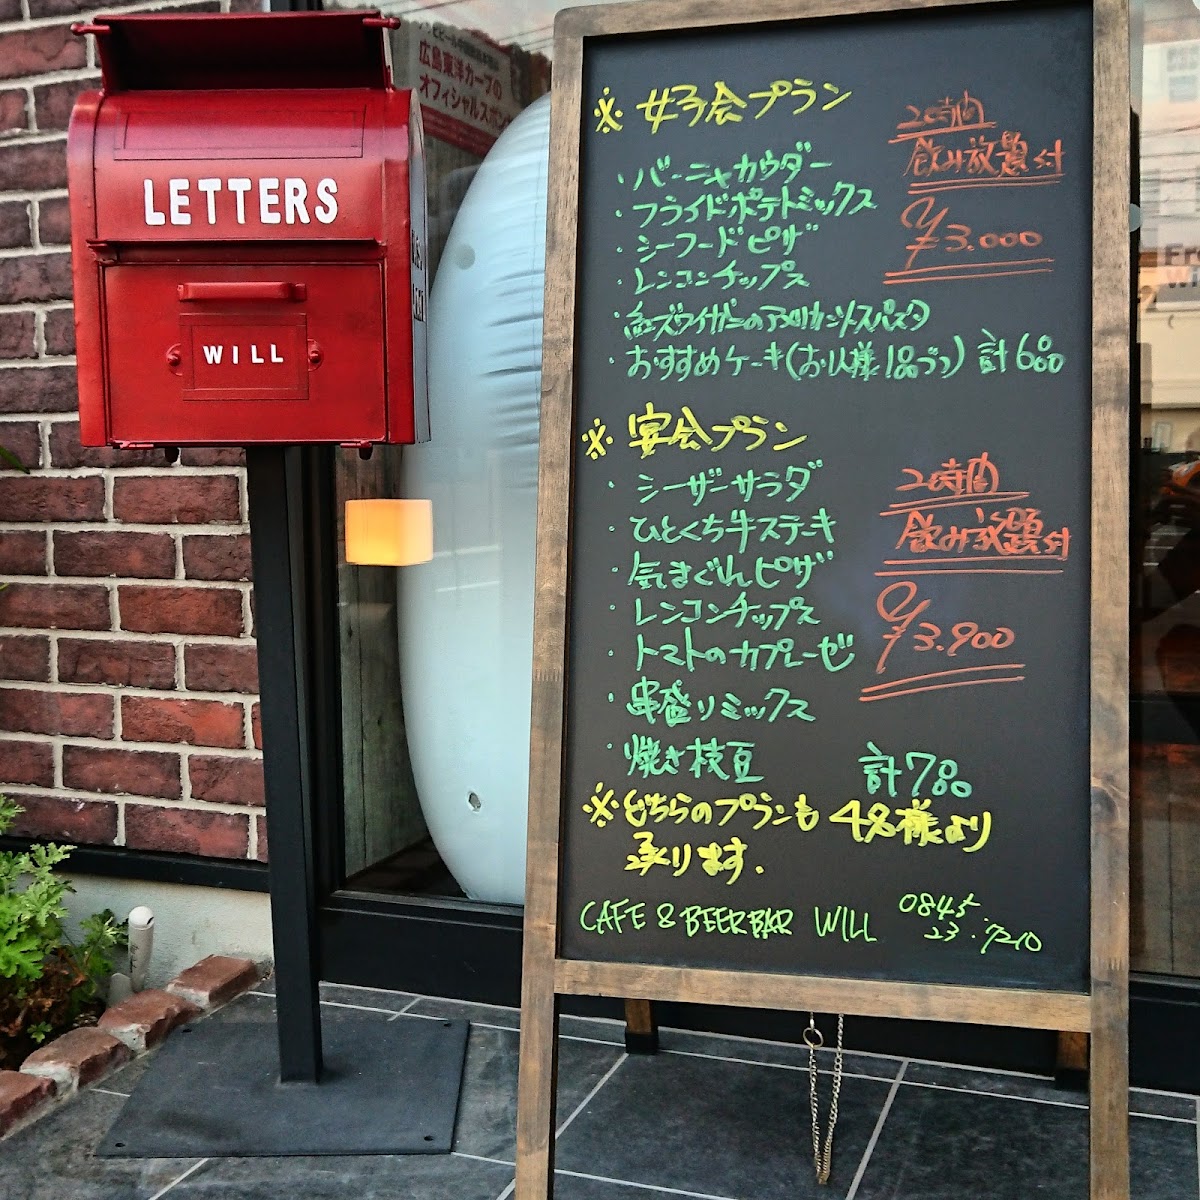 広島東洋カープの
オフィシャルスポン
LETTERS
WILL
※ 女子会プラン
2時間
飲み放題付
¥3.000
・バーニャカウダー
・フライドポテトミックス
・シーフードピザ
・レンコンチップス
・紅ズワイガニのアメリカンソースパスタ
・おすすめケーキ(お1人様1品づつ) 計6品
※ 宴会プラン
2時間
飲み放題付
¥3.900
・シーザーサラダ
・ひとくち牛ステーキ
・気まぐれピザ
・レンコンチップス
・トマトのカプレーゼ
・串盛りミックス
・焼き枝豆 計7品
※どちらのプランも 4名様より
承ります.
CAFE & BEERBAR WILL 0845.
23.7210